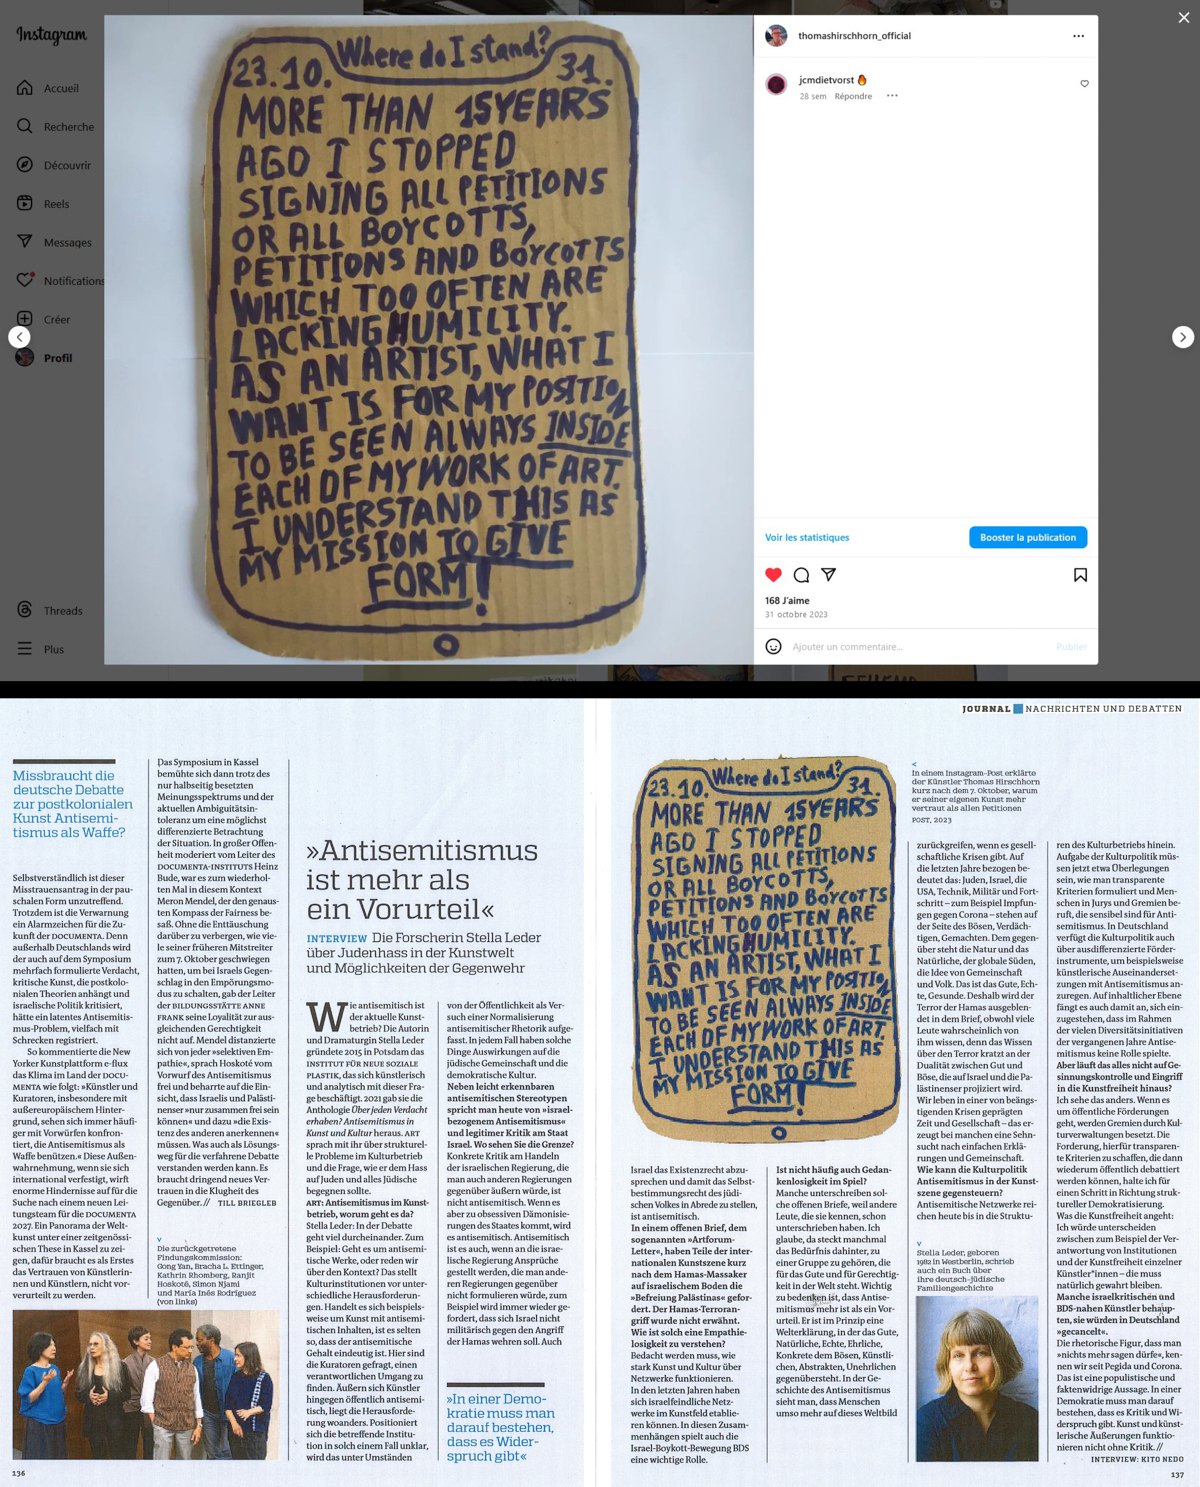 Instagram
Accueil
Recherche
Découvrir
Reels
Messages
Notifications
Créer
Profil
Threads
Plus
Where do I stand?
23.10.
31.
MORE THAN 15 YEARS
AGO I STOPPED
SIGNING ALL PETITIONS
OR ALL BOYCOTTS,
PETITIONS AND BOYCOTTS
WHICH TOO OFTEN ARE
LACKING HUMILITY.
AS AN ARTIST, WHAT I
WANT IS FOR MY POSITION
TO BE SEEN ALWAYS INSIDE
EACH OF MY WORK OF ART.
I UNDERSTAND THIS AS
MY MISSION TO GIVE
FORM!
thomashirschhorn_official
jcmdietvorst 🔥
28 sem Répondre
Voir les statistiques
Booster la publication
168 J'aime
31 octobre 2023
Ajouter un commentaire...
Publier
Missbraucht die
deutsche Debatte
zur postkolonialen
Kunst Antisemi-
tismus als Waffe?
Selbstverständlich ist dieser
Misstrauensantrag in der pau-
schalen Form unzutreffend.
Trotzdem ist die Verwarnung
ein Alarmzeichen für die Zu-
kunft der DOCUMENTA. Denn
außerhalb Deutschlands wird
der auch auf dem Symposium
mehrfach formulierte Verdacht,
kritische Kunst, die postkolo-
nialen Theorien anhängt und
israelische Politik kritisiert,
hätte ein latentes Antisemitis-
mus-Problem, vielfach mit
Schrecken registriert.
So kommentierte die New
Yorker Kunstplattform e-flux
das Klima im Land der DOCU-
MENTA wie folgt: »Künstler und
Kuratoren, insbesondere mit
außereuropäischem Hinter-
grund, sehen sich immer häufi-
ger mit Vorwürfen konfron-
tiert, die Antisemitismus als
Waffe benützen.« Diese Außen-
wahrnehmung, wenn sie sich
international verfestigt, wirft
enorme Hindernisse auf für die
Suche nach einem neuen Lei-
tungsteam für die DOCUMENTA
2027. Ein Panorama der Welt-
kunst unter einer zeitgenössi-
schen These in Kassel zu zei-
gen, dafür braucht es als Erstes
das Vertrauen von Künstlerin-
nen und Künstlern, nicht vor-
verurteilt zu werden.
Das Symposium in Kassel
bemühte sich dann trotz des
nur halbseitig besetzten
Meinungsspektrums und der
aktuellen Ambiguitätsin-
toleranz um eine möglichst
differenzierte Betrachtung
der Situation. In großer Offen-
heit moderiert vom Leiter des
DOCUMENTA-INSTITUTS Heinz
Bude, war es zum wiederhol-
ten Mal in diesem Kontext
Meron Mendel, der den genaus-
ten Kompass der Fairness be-
saß. Ohne die Enttäuschung
darüber zu verbergen, wie vie-
le seiner früheren Mitstreiter
zum 7. Oktober geschwiegen
hatten, um bei Israels Gegen-
schlag in den Empörungsmo-
dus zu schalten, gab der Leiter
der BILDUNGSSTÄTTE ANNE
FRANK seine Loyalität zur aus-
gleichenden Gerechtigkeit
nicht auf. Mendel distanzierte
sich von jeder »selektiven Em-
pathie«, sprach Hoskoté vom
Vorwurf des Antisemitismus
frei und beharrte auf die Ein-
sicht, dass Israelis und Palästi-
nenser »nur zusammen frei sein
können« und dazu »die Exis-
tenz des anderen anerkennen«
müssen. Was auch als Lösungs-
weg für die verfahrene Debatte
verstanden werden kann. Es
braucht dringend neues Ver-
trauen in die Klugheit des
Gegenüber. // TILL BRIEGLEB
v
Die zurückgetretene
Findungskommission:
Gong Yan, Bracha L. Ettinger,
Kathrin Rhomberg, Ranjit
Hoskoté, Simon Njami
und María Inés Rodríguez
(von links)
136
»Antisemitismus
ist mehr als
ein Vorurteil«
INTERVIEW Die Forscherin Stella Leder
über Judenhass in der Kunstwelt
und Möglichkeiten der Gegenwehr
Wie antisemitisch ist
der aktuelle Kunst-
betrieb? Die Autorin
und Dramaturgin Stella Leder
gründete 2015 in Potsdam das
INSTITUT FÜR NEUE SOZIALE
PLASTIK, das sich künstlerisch
und analytisch mit dieser Fra-
ge beschäftigt. 2021 gab sie die
Anthologie Über jeden Verdacht
erhaben? Antisemitismus in
Kunst und Kultur heraus. ART
sprach mit ihr über strukturel-
le Probleme im Kulturbetrieb
und die Frage, wie er dem Hass
auf Juden und alles Jüdische
begegnen sollte.
ART: Antisemitismus im Kunst-
betrieb, worum geht es da?
Stella Leder: In der Debatte
geht viel durcheinander. Zum
Beispiel: Geht es um antisemi-
tische Werke, oder reden wir
über den Kontext? Das stellt
Kulturinstitutionen vor unter-
schiedliche Herausforderun-
gen. Handelt es sich beispiels-
weise um Kunst mit antisemi-
tischen Inhalten, ist es selten
so, dass der antisemitische
Gehalt eindeutig ist. Hier sind
die Kuratoren gefragt, einen
verantwortlichen Umgang zu
finden. Äußern sich Künstler
hingegen öffentlich antisemi-
tisch, liegt die Herausforde-
rung woanders. Positioniert
sich die betreffende Institu-
tion in solch einem Fall unklar,
wird das unter Umständen
von der Öffentlichkeit als Ver-
such einer Normalisierung
antisemitischer Rhetorik aufge-
fasst. In jedem Fall haben solche
Dinge Auswirkungen auf die
jüdische Gemeinschaft und die
demokratische Kultur.
Neben leicht erkennbaren
antisemitischen Stereotypen
spricht man heute von »israel-
bezogenem Antisemitismus«
und legitimer Kritik am Staat
Israel. Wo sehen Sie die Grenze?
Konkrete Kritik am Handeln
der israelischen Regierung, die
man auch anderen Regierungen
gegenüber äußern würde, ist
nicht antisemitisch. Wenn es
aber zu obsessiven Dämonisie-
rungen des Staates kommt, wird
es antisemitisch. Antisemitisch
ist es auch, wenn an die israe-
lische Regierung Ansprüche
gestellt werden, die man ande-
ren Regierungen gegenüber
nicht formulieren würde, zum
Beispiel wird immer wieder ge-
fordert, dass sich Israel nicht
militärisch gegen den Angriff
der Hamas wehren soll. Auch
»In einer Demo-
kratie muss man
darauf bestehen,
dass es Wider-
spruch gibt«
JOURNAL NACHRICHTEN UND DEBATTEN
Where do I stand?
23.10.
31.
MORE THAN 15 YEARS
AGO I STOPPED
SIGNING ALL PETITIONS
OR ALL BOYCOTTS,
PETITIONS AND BOYCOTTS
WHICH TOO OFTEN ARE
LACKING HUMILITY.
AS AN ARTIST, WHAT I
WANT IS FOR MY POSITION
TO BE SEEN ALWAYS INSIDE
EACH OF MY WORK OF ART
I UNDERSTAND THIS AS
MY MISSION TO GIVE
FORM!
<
In einem Instagram-Post erklärte
der Künstler Thomas Hirschhorn
kurz nach dem 7. Oktober, warum
er seiner eigenen Kunst mehr
vertraut als allen Petitionen
POST, 2023
Israel das Existenzrecht abzu-
sprechen und damit das Selbst-
bestimmungsrecht des jüdi-
schen Volkes in Abrede zu stellen,
ist antisemitisch.
In einem offenen Brief, dem
sogenannten »Artforum-
Letter«, haben Teile der inter-
nationalen Kunstszene kurz
nach dem Hamas-Massaker
auf israelischem Boden die
»Befreiung Palästinas« gefor-
dert. Der Hamas-Terroran-
griff wurde nicht erwähnt.
Wie ist solch eine Empathie-
losigkeit zu verstehen?
Bedacht werden muss, wie
stark Kunst und Kultur über
Netzwerke funktionieren.
In den letzten Jahren haben
sich israelfeindliche Netz-
werke im Kunstfeld etablie-
ren können. In diesen Zusam-
menhängen spielt auch die
Israel-Boykott-Bewegung BDS
eine wichtige Rolle.
Ist nicht häufig auch Gedan-
kenlosigkeit im Spiel?
Manche unterschreiben sol-
che offenen Briefe, weil andere
Leute, die sie kennen, schon
unterschrieben haben. Ich
glaube, da steckt manchmal
das Bedürfnis dahinter, zu
einer Gruppe zu gehören, die
für das Gute und für Gerechtig-
keit in der Welt steht. Wichtig
zu bedenken ist, dass Antise-
mitismus mehr ist als ein Vor-
urteil. Er ist im Prinzip eine
Welterklärung, in der das Gute,
Natürliche, Echte, Ehrliche,
Konkrete dem Bösen, Künstli-
chen, Abstrakten, Unehrlichen
gegenübersteht. In der Ge-
schichte des Antisemitismus
sieht man, dass Menschen
umso mehr auf dieses Weltbild
zurückgreifen, wenn es gesell-
schaftliche Krisen gibt. Auf
die letzten Jahre bezogen be-
deutet das: Juden, Israel, die
USA, Technik, Militär und Fort-
schritt – zum Beispiel Impfun-
gen gegen Corona – stehen auf
der Seite des Bösen, Verdäch-
tigen, Gemachten. Dem gegen-
über steht die Natur und das
Natürliche, der globale Süden,
die Idee von Gemeinschaft
und Volk. Das ist das Gute, Ech-
te, Gesunde. Deshalb wird der
Terror der Hamas ausgeblen-
det in dem Brief, obwohl viele
Leute wahrscheinlich von
ihm wissen, denn das Wissen
über den Terror kratzt an der
Dualität zwischen Gut und
Böse, die auf Israel und die Pa-
lästinenser projiziert wird.
Wir leben in einer von beängs-
tigenden Krisen geprägten
Zeit und Gesellschaft – das er-
zeugt bei manchen eine Sehn-
sucht nach einfachen Erklä-
rungen und Gemeinschaft.
Wie kann die Kulturpolitik
Antisemitismus in der Kunst-
szene gegensteuern?
Antisemitische Netzwerke rei-
chen heute bis in die Struktu-
v
Stella Leder, geboren
1982 in Westberlin, schrieb
auch ein Buch über
ihre deutsch-jüdische
Familiengeschichte
ren des Kulturbetriebs hinein.
Aufgabe der Kulturpolitik müs-
sen jetzt etwa Überlegungen
sein, wie man transparente
Kriterien formuliert und Men-
schen in Jurys und Gremien be-
ruft, die sensibel sind für Anti-
semitismus. In Deutschland
verfügt die Kulturpolitik auch
über ausdifferenzierte Förder-
instrumente, um beispielsweise
künstlerische Auseinanderset-
zungen mit Antisemitismus an-
zuregen. Auf inhaltlicher Ebene
fängt es auch damit an, sich ein-
zugestehen, dass im Rahmen
der vielen Diversitätsinitiativen
der vergangenen Jahre Antise-
mitismus keine Rolle spielte.
Aber läuft das alles nicht auf Ge-
sinnungskontrolle und Eingriff
in die Kunstfreiheit hinaus?
Ich sehe das anders. Wenn es
um öffentliche Förderungen
geht, werden Gremien durch Kul-
turverwaltungen besetzt. Die
Forderung, hierfür transparen-
te Kriterien zu schaffen, die dann
wiederum öffentlich debattiert
werden können, halte ich für
einen Schritt in Richtung struk-
tureller Demokratisierung.
Was die Kunstfreiheit angeht:
Ich würde unterscheiden
zwischen zum Beispiel der Ver-
antwortung von Institutionen
und der Kunstfreiheit einzelner
Künstler*innen – die muss
natürlich gewahrt bleiben.
Manche israelkritischen und
BDS-nahen Künstler behaup-
ten, sie würden in Deutschland
»gecancelt«.
Die rhetorische Figur, dass man
»nichts mehr sagen dürfe«, ken-
nen wir seit Pegida und Corona.
Das ist eine populistische und
faktenwidrige Aussage. In einer
Demokratie muss man darauf
bestehen, dass es Kritik und Wi-
derspruch gibt. Kunst und künst-
lerische Äußerungen funktio-
nieren nicht ohne Kritik. //
INTERVIEW: KITO NEDO
137